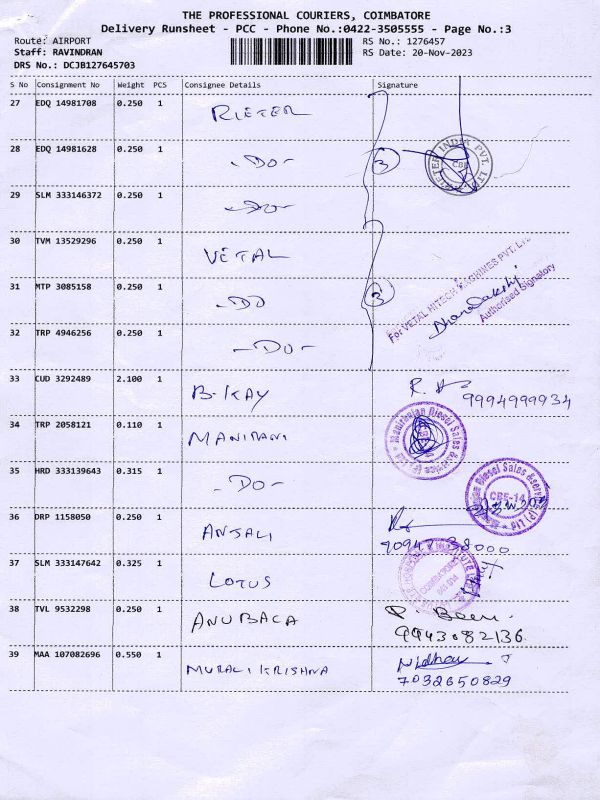 THE PROFESSIONAL COURIERS, COIMBATORE
Delivery Runsheet - PCC - Phone No.:0422-3505555 - Page No.:3
Route: AIRPORT RS No.: 1276457
Staff: RAVINDRAN RS Date: 20-Nov-2023
DRS No.: DCJB127645703
S No Consignment No Weight PCS Consignee Details Signature
27 EDQ 14981708 0.250 1 RIETER
28 EDQ 14981628 0.250 1 -DO- 3 RIETER INDIA PVT. LTD CBE
29 SLM 333146372 0.250 1 -DO-
30 TVM 13529296 0.250 1 VETAL
For VETAL HITECH MACHINES PVT. LTD
31 MTP 3085158 0.250 1 -DO 3 Dhanalakshi
Authorised Signatory
32 TRP 4946256 0.250 1 -DO-
33 CUD 3292489 2.100 1 B-KAY R. 9994999934
34 TRP 2058121 0.110 1 MANIRANI Diesel Sales &service (P) Ltd
35 HRD 333139643 0.315 1 -DO- Diesel Sales &service (P) Ltd CBE-14
36 DRP 1158050 0.250 1 ANJALI
38000
37 SLM 333147642 0.325 1 LOTUS COIMBATORE 641 014
38 TVL 9532298 0.250 1 ANUBACA P.
9943082136
39 MAA 107082696 0.550 1 MURALI KRISHNA
7032650829